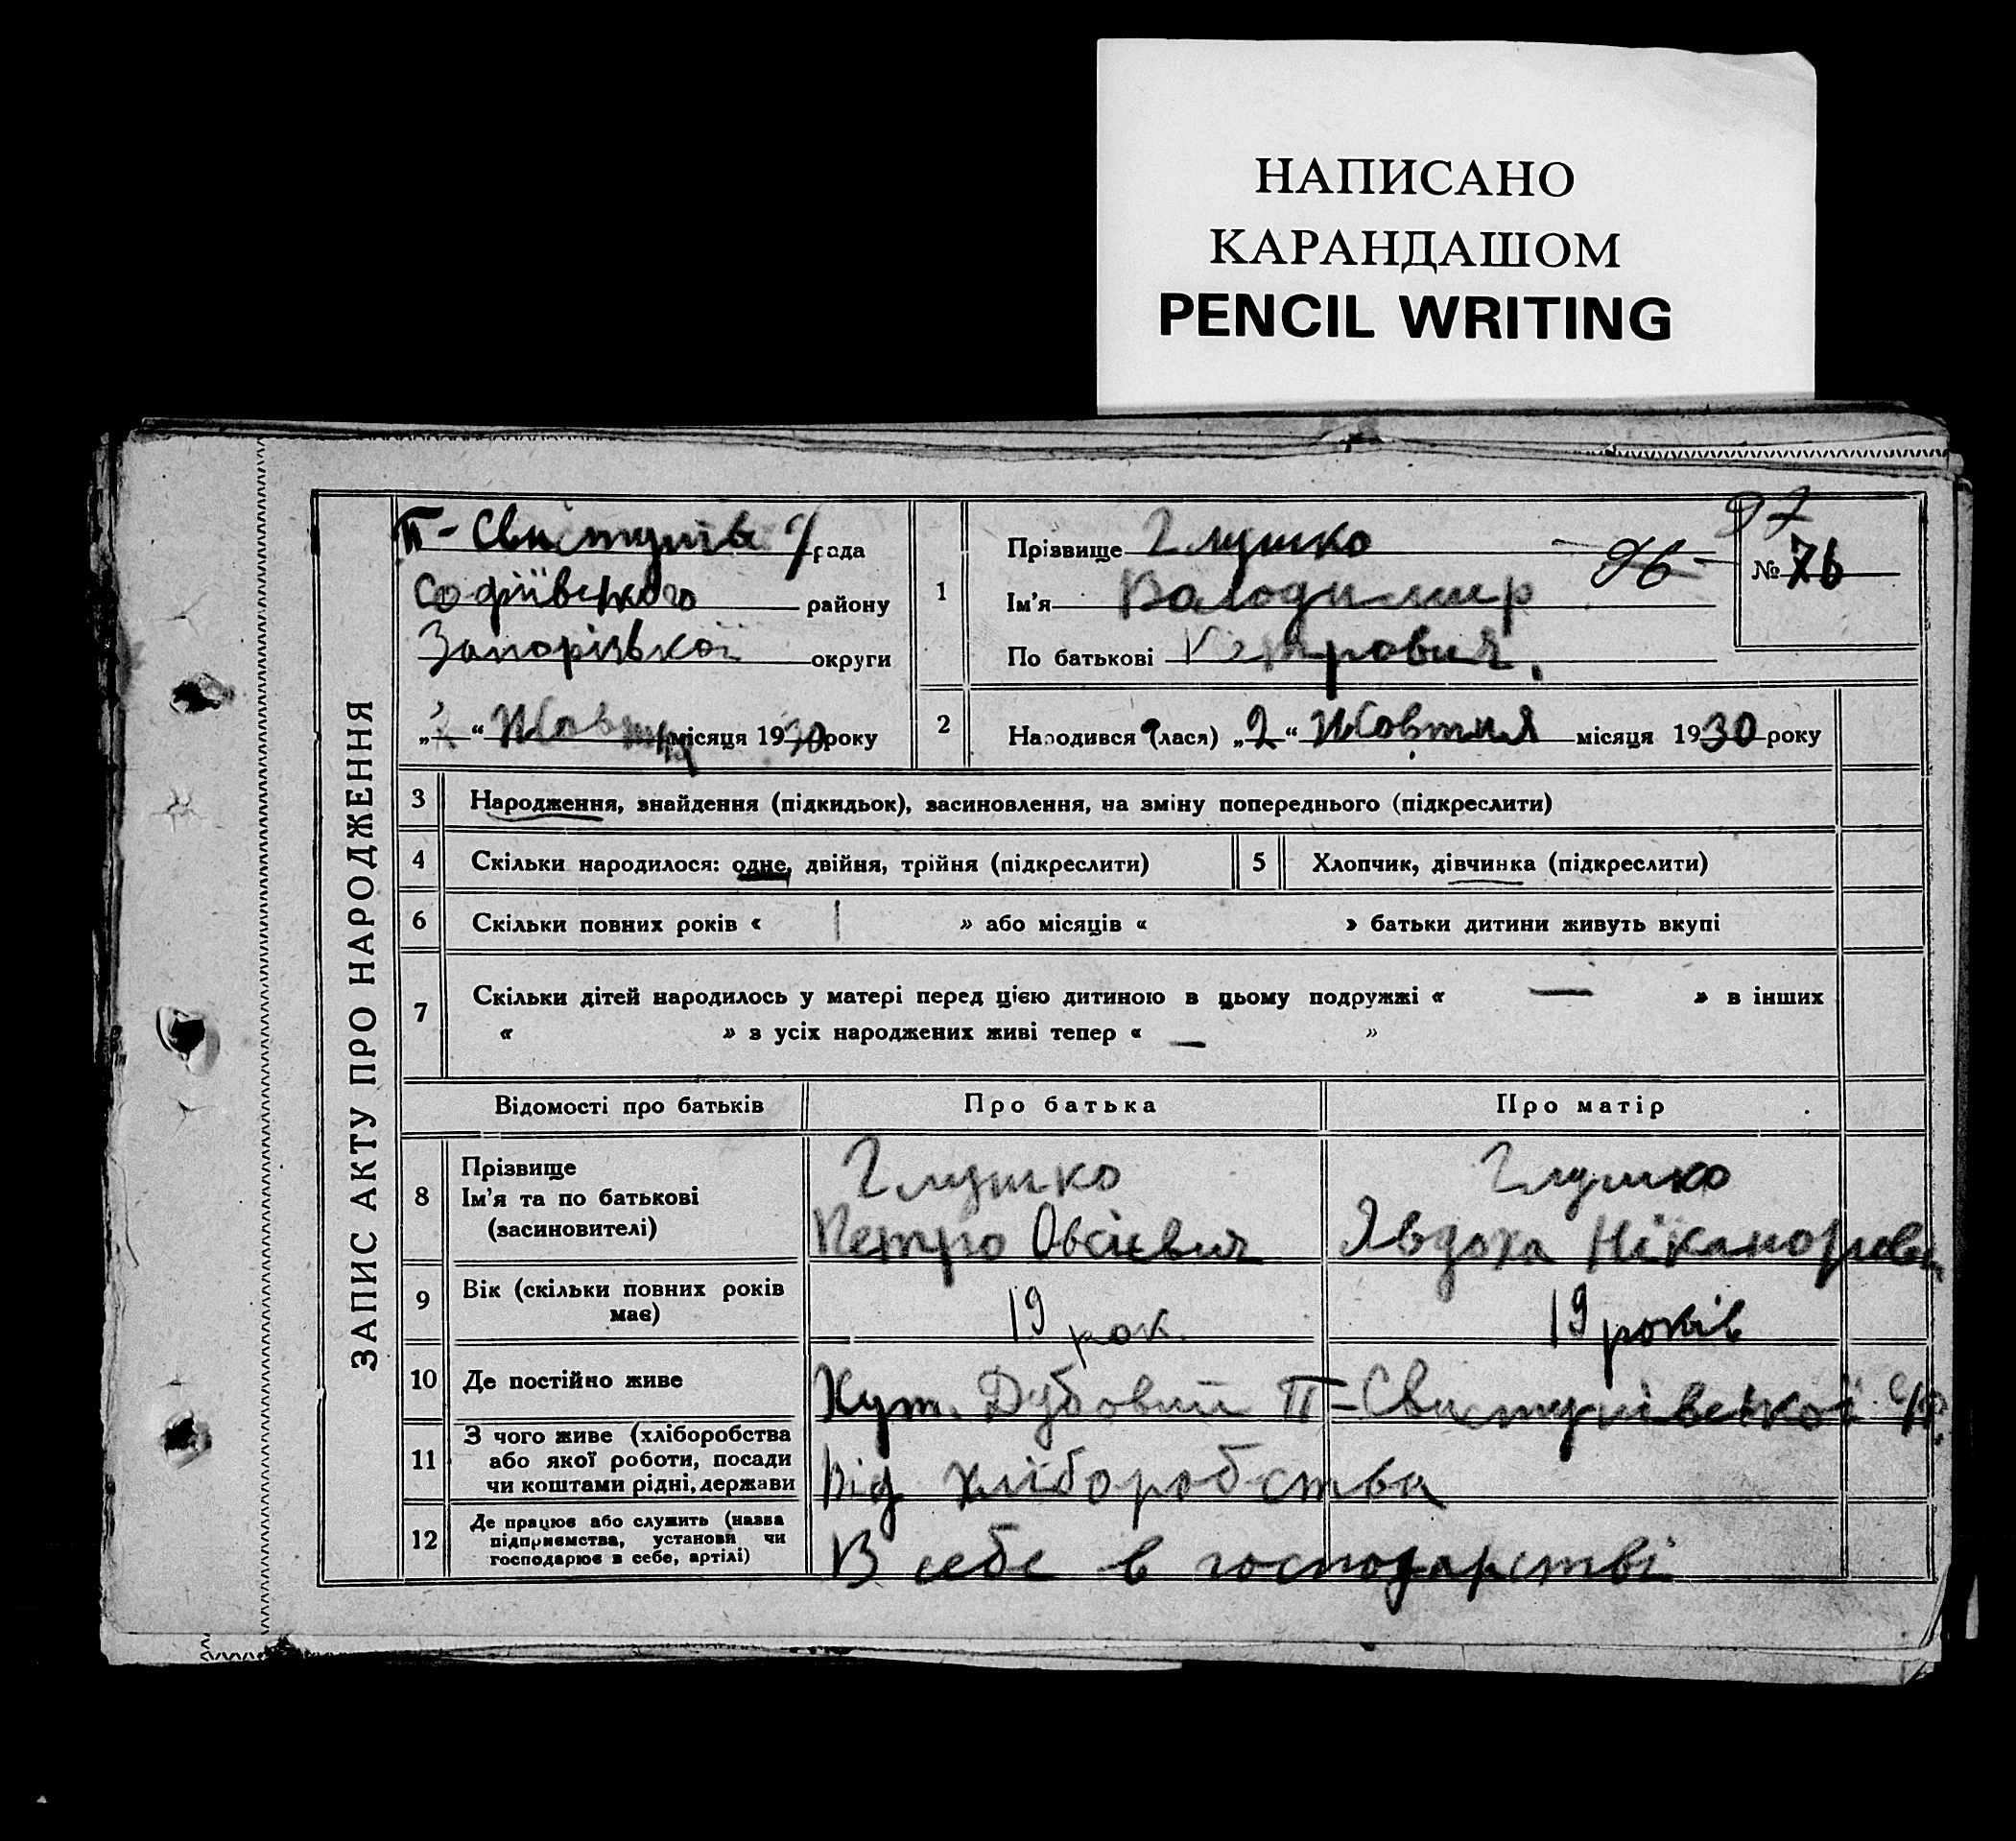 НАПИСАНО
КАРАНДАШОМ
PENCIL WRITING
ЗАПИС АКТУ ПРО НАРОДЖЕННЯ
рада
Софіївського району
Запорізької округи
„ “ Жовтня місяця 1930 року
1
Прізвище Глушко
Ім’я Володимир
По батькові Петрович.
96
97
№ 76
2
Народився (лася) „2“ Жовтня місяця 1930 року
3 Народження, знайдення (підкидьок), засиновлення, на зміну попереднього (підкреслити)
4 Скільки народилося: одне, двійня, трійня (підкреслити)
5 Хлопчик, дівчинка (підкреслити)
6 Скільки повних років « 1 » або місяців « » батьки дитини живуть вкупі
7 Скільки дітей народилось у матері перед цією дитиною в цьому подружжі « — » в інших
« » з усіх народжених живі тепер « — »
Відомості про батьків
Про батька
Про матір
8
Прізвище
Ім’я та по батькові
(засиновителі)
Глушко
Петро Овсієвич
Глушко
Явдоха Ніканоровн
9
Вік (скільки повних років
має)
19 рок.
19 років
10 Де постійно живе
Хут. Дубовий ІІ-Свистунівської с/р.
11
З чого живе (хліборобства
або якої роботи, посади
чи коштами рідні, держави
Від хліборобства
12
Де працює або служить (назва
підприємства, установи чи
господарює в себе, артілі)
В себе в господарстві